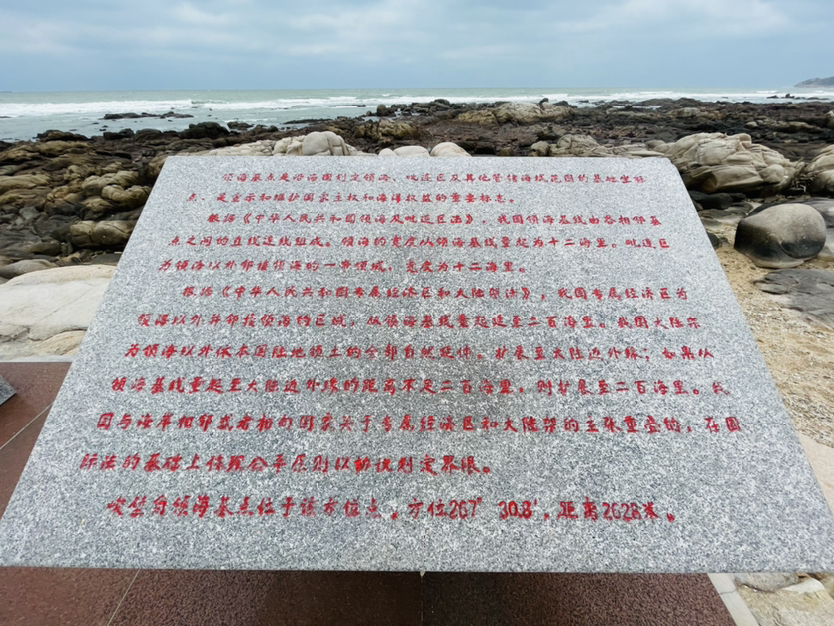 领海基点是沿海国划定领海、毗连区及其他管辖海域范围的基础坐标
点、是宣示和维护国家主权和海洋权益的重要标志。
根据《中华人民共和国领海及毗连区法》，我国领海基线由各相邻基
点之间的直线连线组成。领海的宽度从领海基线量起为十二海里。毗连区
为领海以外邻接领海的一带海域，宽度为十二海里。
根据《中华人民共和国专属经济区和大陆架法》，我国专属经济区为
领海以外并邻接领海的区域，从领海基线量起延至二百海里。我国大陆架
为领海以外依本国陆地领土的全部自然延伸，扩展至大陆边外缘；如果从
领海基线量起至大陆边外缘的距离不足二百海里，则扩展至二百海里。我
国与海岸相邻或者相向国家关于专属经济区和大陆架的主张重叠的，在国
际法的基础上按照公平原则以协议划定界限。
峻壁角领海基点位于该方位点，方位267° 30.8′，距离2628米。